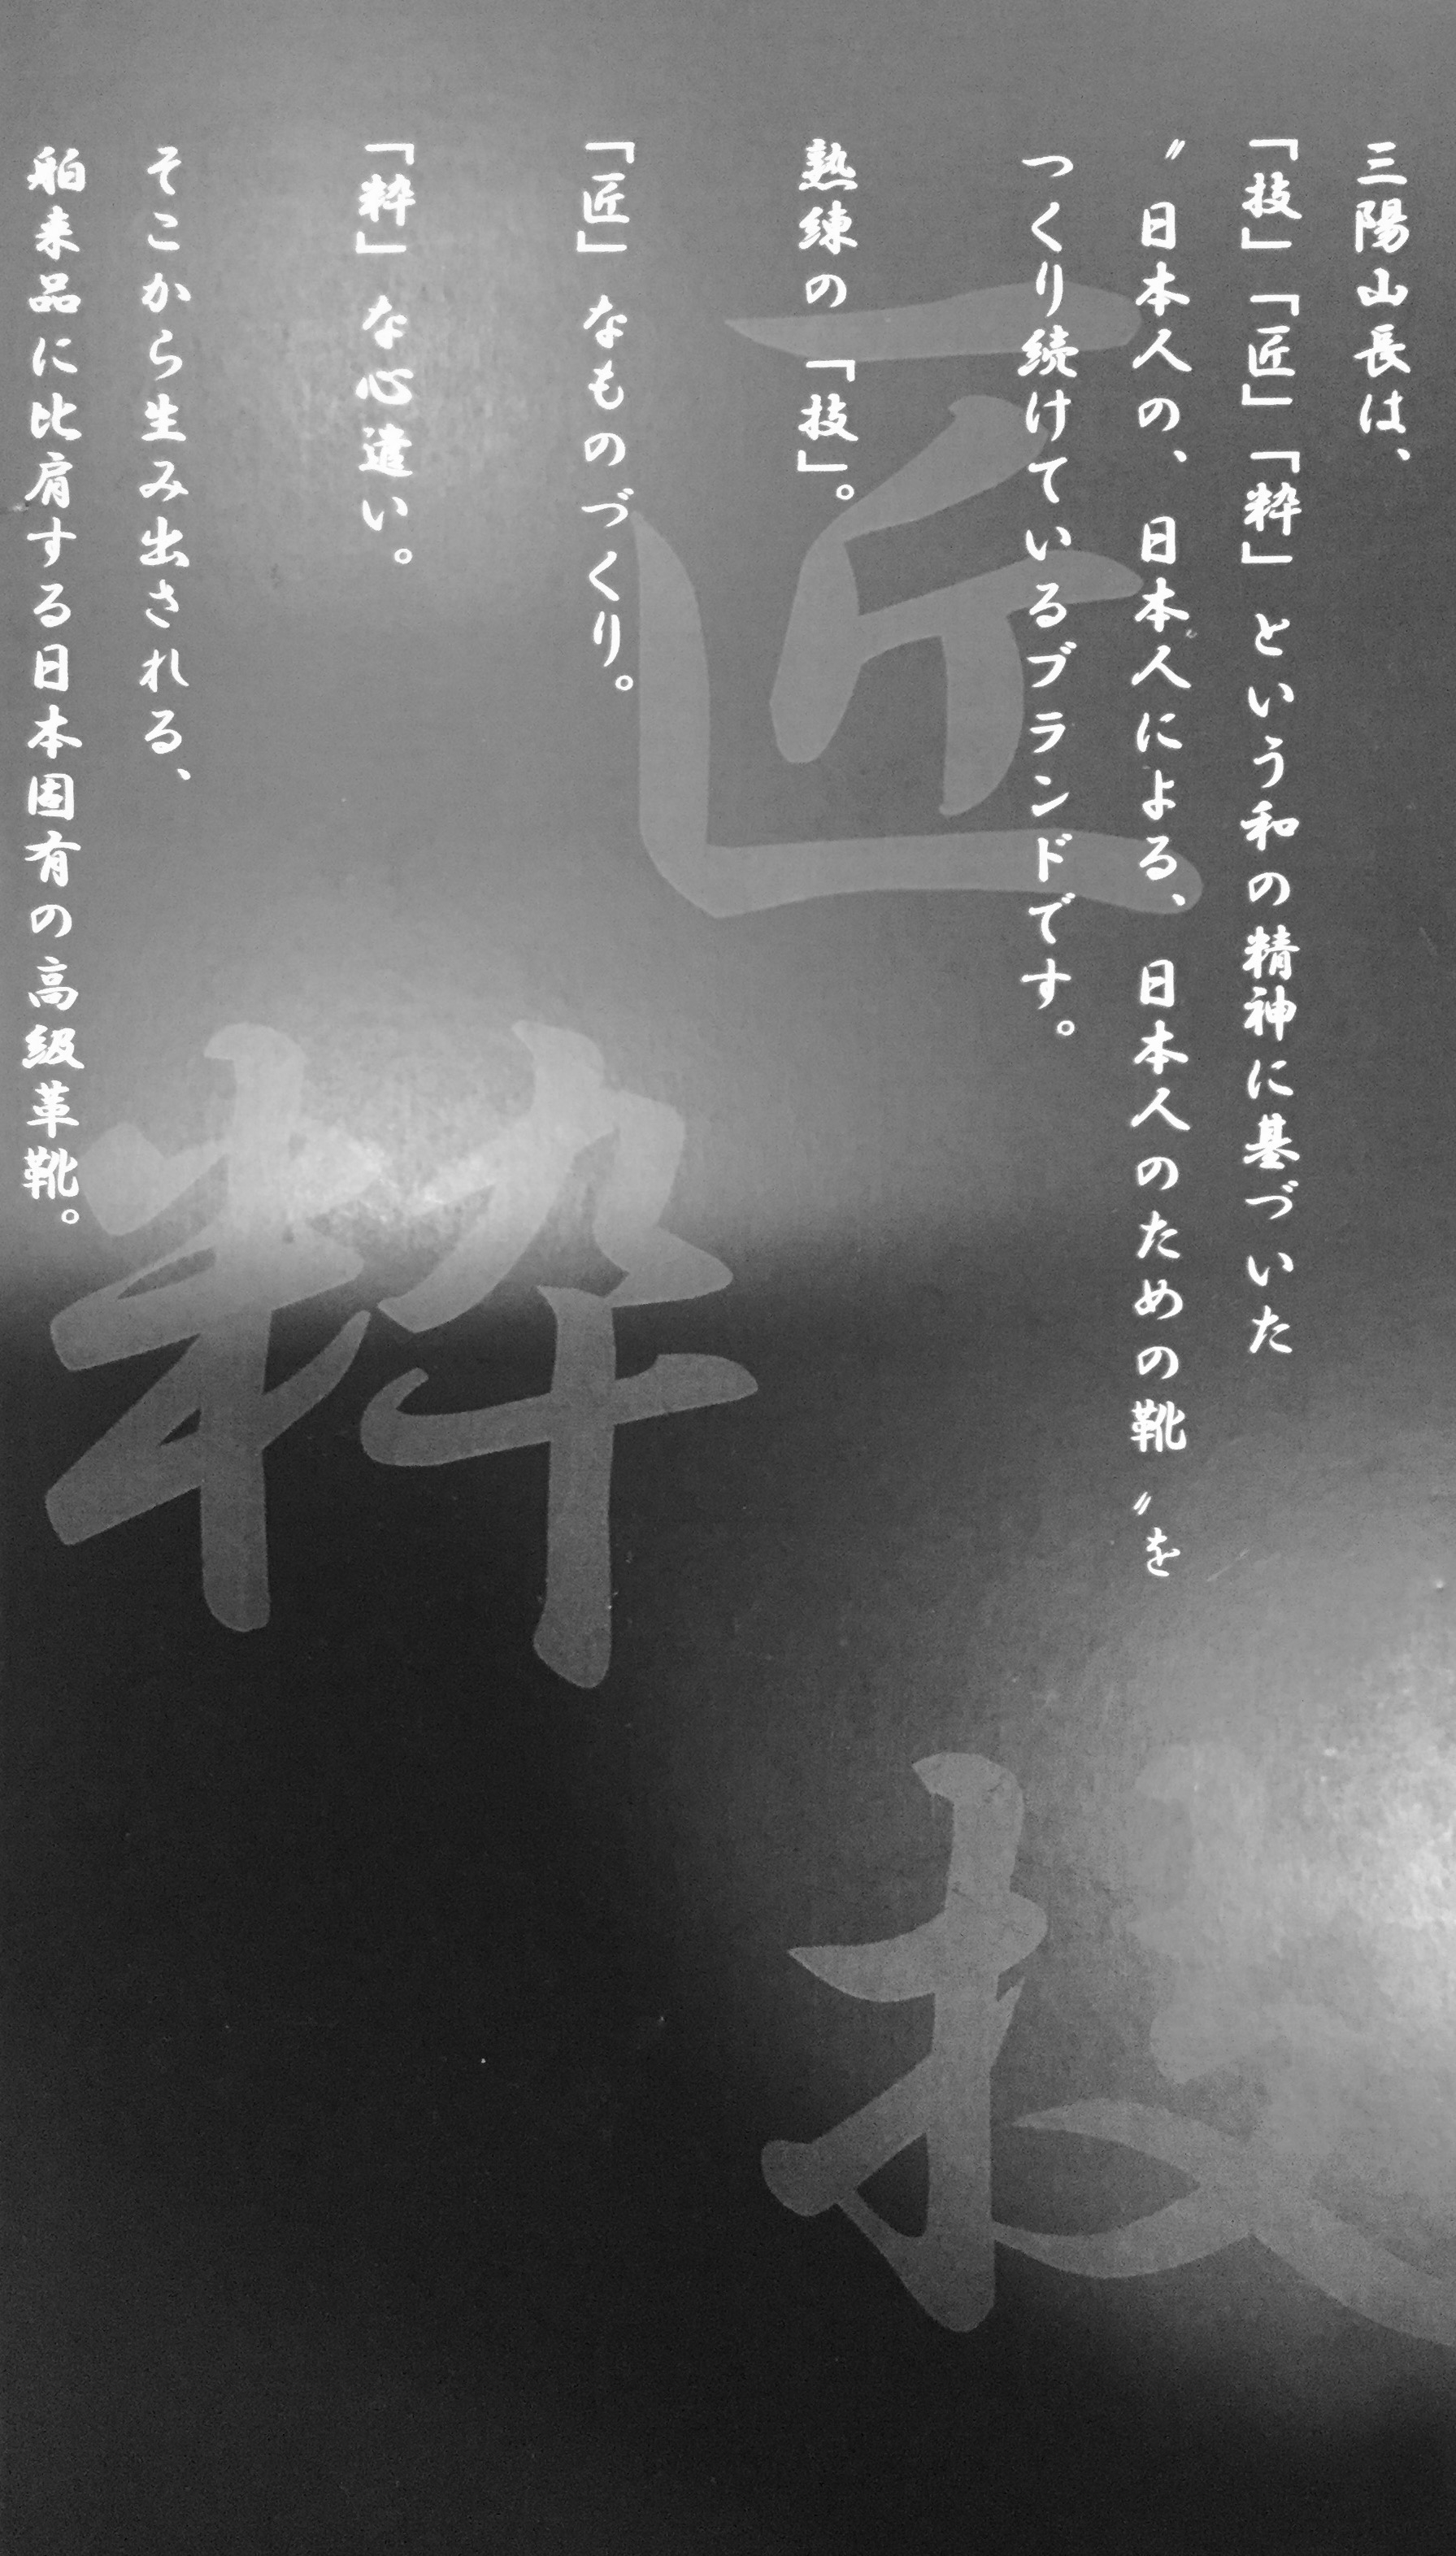 三陽山長は、
「技」「匠」「粋」という和の精神に基づいた
〝日本人の、日本人による、日本人のための靴〟を
つくり続けているブランドです。
熟練の「技」。
「匠」なものづくり。
「粋」な心遣い。
そこから生み出される、
舶来品に比肩する日本固有の高級革靴。
匠
粋
技